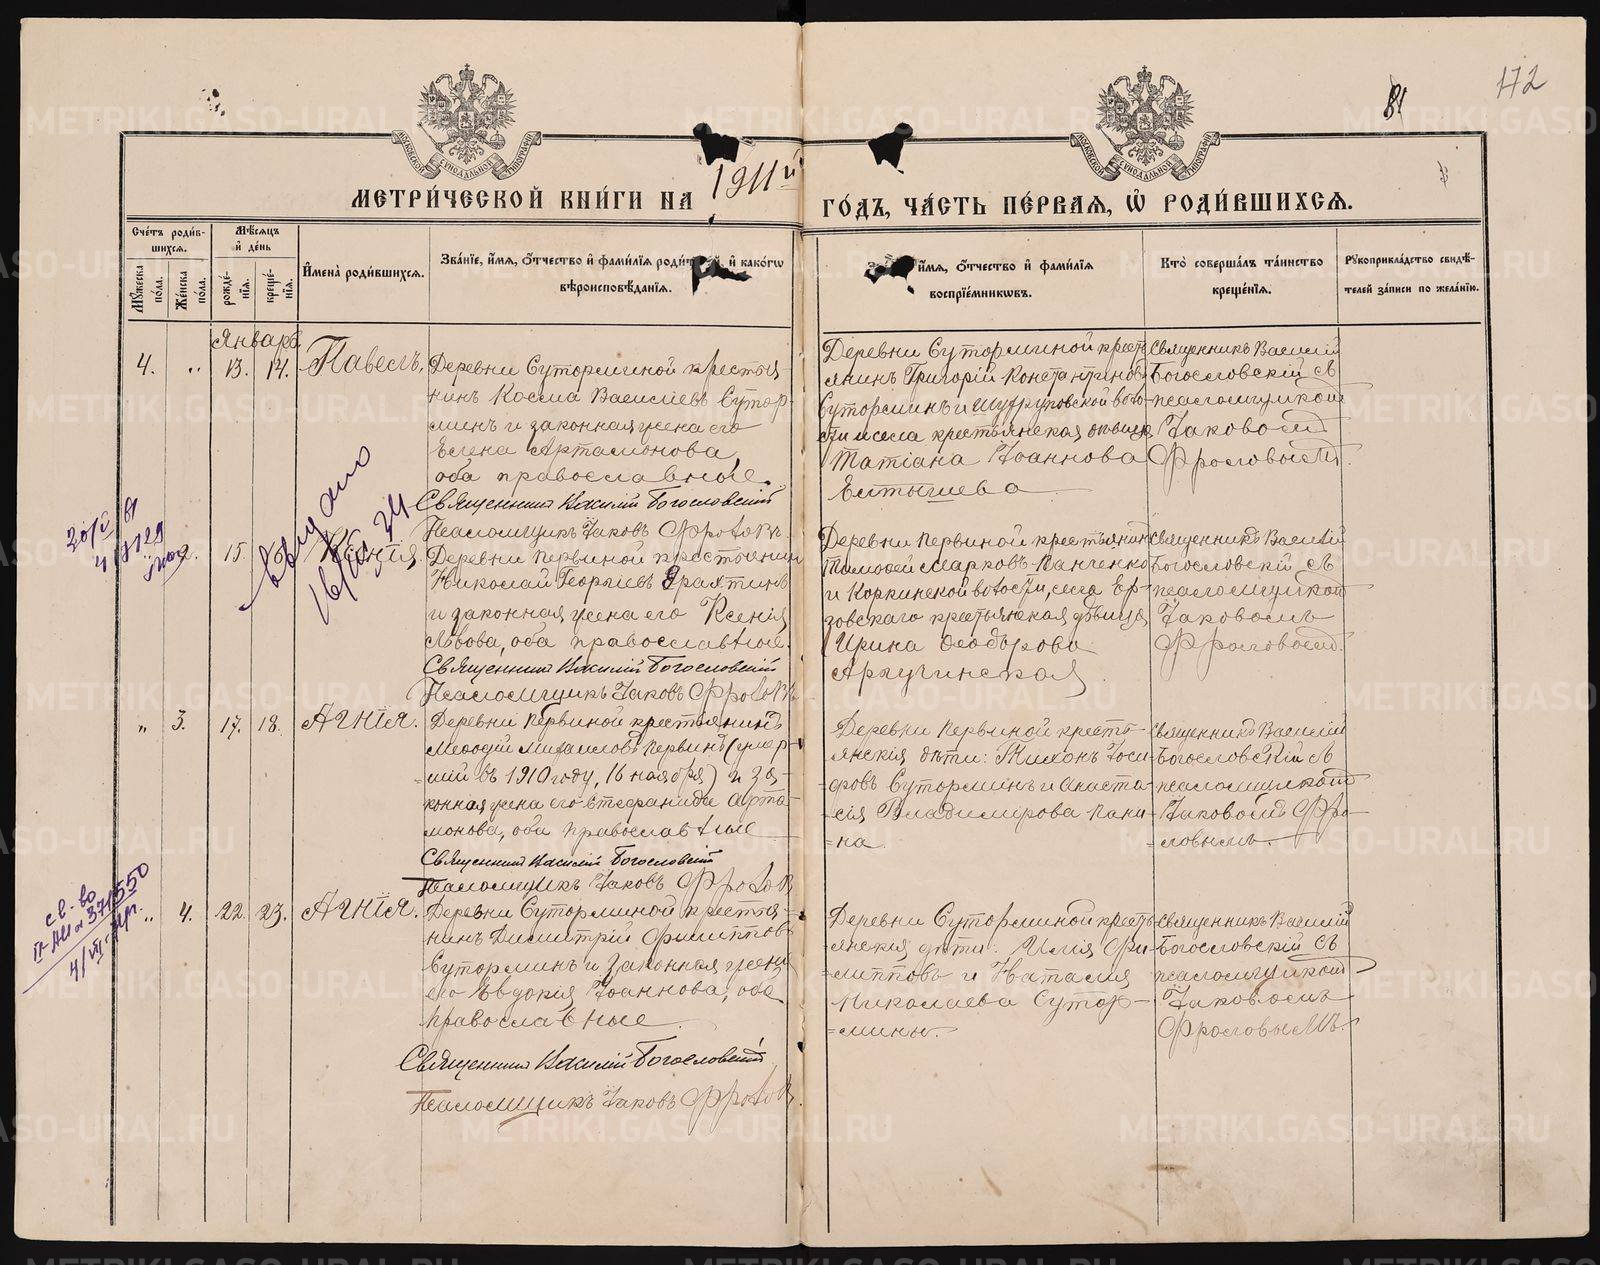 172
81
МЕТРИ́ЧЕСКОЙ КНИ́ГИ НА 1911й ГО́ДЪ, ЧА́СТЬ ПЕ́РВАЯ, Ѡ РОДИ́ВШИХСЯ.
МОСКОВСКОЙ СѴНОДАЛЬНОЙ ТИПОГРАФІИ
МОСКОВСКОЙ СѴНОДАЛЬНОЙ ТИПОГРАФІИ
Сче́тъ роди́в-
шихся.
Му́жеска по́ла.
Же́нска по́ла.
Мѣ́сяцъ
и҆ де́нь
рожде́-
нїя.
креще́-
нїя.
И҆мена̀ роди́вшихся.
Зва́нїе, и҆́мя, ѻ҆́тчество и҆ фами́лїя роди́т й, и҆ како́гѡ
вѣроисповѣ́данїя.
и҆́мя, ѻ҆́тчество и҆ фами́лїя
воспрїе́мникѡвъ.
Кто̀ соверша́лъ та́инство
креще́нїя.
Рꙋкоприкла́дство свидѣ́-
телей за́писи по жела́нїю.
Январь
4. „ 13. 14. Павелъ,
Деревни Суторминой крестья-
нинъ Косма Васильевъ Сутор-
минъ и законная жена его
Елена Артамонова,
оба православные.
Священникъ Василій Богословскій
Псаломщикъ Іаковъ Фроловъ
Деревни Суторминой кресть-
янинъ Григорій Константиновъ
Суторминъ и волo-
сти и села крестьянская дѣвица
Татіана Іоаннова
Священникъ Василій
Богословскій съ
псаломщикомъ
Іаковомъ
Фроловымъ.
„ 2. 15. Ксенія
Деревни Первиной крестьянинъ
Николай Георгіевъ
и законная жена его Ксенія
Львова, оба православные.
Священникъ Василій Богословскій
Псаломщикъ Іаковъ Фроловъ
Деревни Первиной крестьянинъ
Тимофей Марковъ Панченко
и Коркинской волости, села Ер-
зовскаго крестьянская дѣвица
Ирина Ѳеодорова
Священникъ Василій
Богословскій съ
псаломщикомъ
Іаковомъ
Фроловымъ.
„ 3. 17. 18. Агнія.
Деревни Первиной крестьянинъ
Меѳодій Михаиловъ Первинъ (умер-
шій въ 1910 году, 16 ноября) и за-
конная жена его Стефанида Арта-
монова, оба православные
Священникъ Василій Богословскій
Псаломщикъ Іаковъ Фроловъ
Деревни Первиной кресть-
янскія дѣти: Тихонъ Іоси-
фовъ Суторминъ и Анаста-
сія Владимірова Пани-
на.
Священникъ Василій
Богословскій съ
псаломщикомъ
Іаковомъ Фро-
ловымъ.
„ 4. 22. 23. Агнія.
Деревни Суторминой крестья-
нинъ Димитрій Филипповъ
Суторминъ и законная жена
его Евдокія Іоаннова, оба
православные.
Священникъ Василій Богословскій
Псаломщикъ Іаковъ Фроловъ
Деревни Суторминой кресть-
янскія дѣти: Илія Фи-
липповъ и Наталія
Николаева Сутор-
мины.
Священникъ Василій
Богословскій съ
псаломщикомъ
Іаковомъ
Фроловымъ.
св-во
METRIKI.GASO-URAL.RU